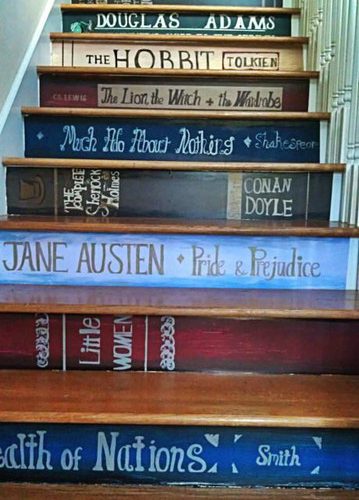 DOUGLAS ADAMS
THE HOBBIT TOLKIEN
C.S. LEWIS The Lion, the Witch + the Wardrobe
Much Ado About Nothing Shakespeare
THE COMPLETE Sherlock Holmes
CONAN DOYLE
JANE AUSTEN Pride & Prejudice
Little WOMEN
ealth of Nations Smith